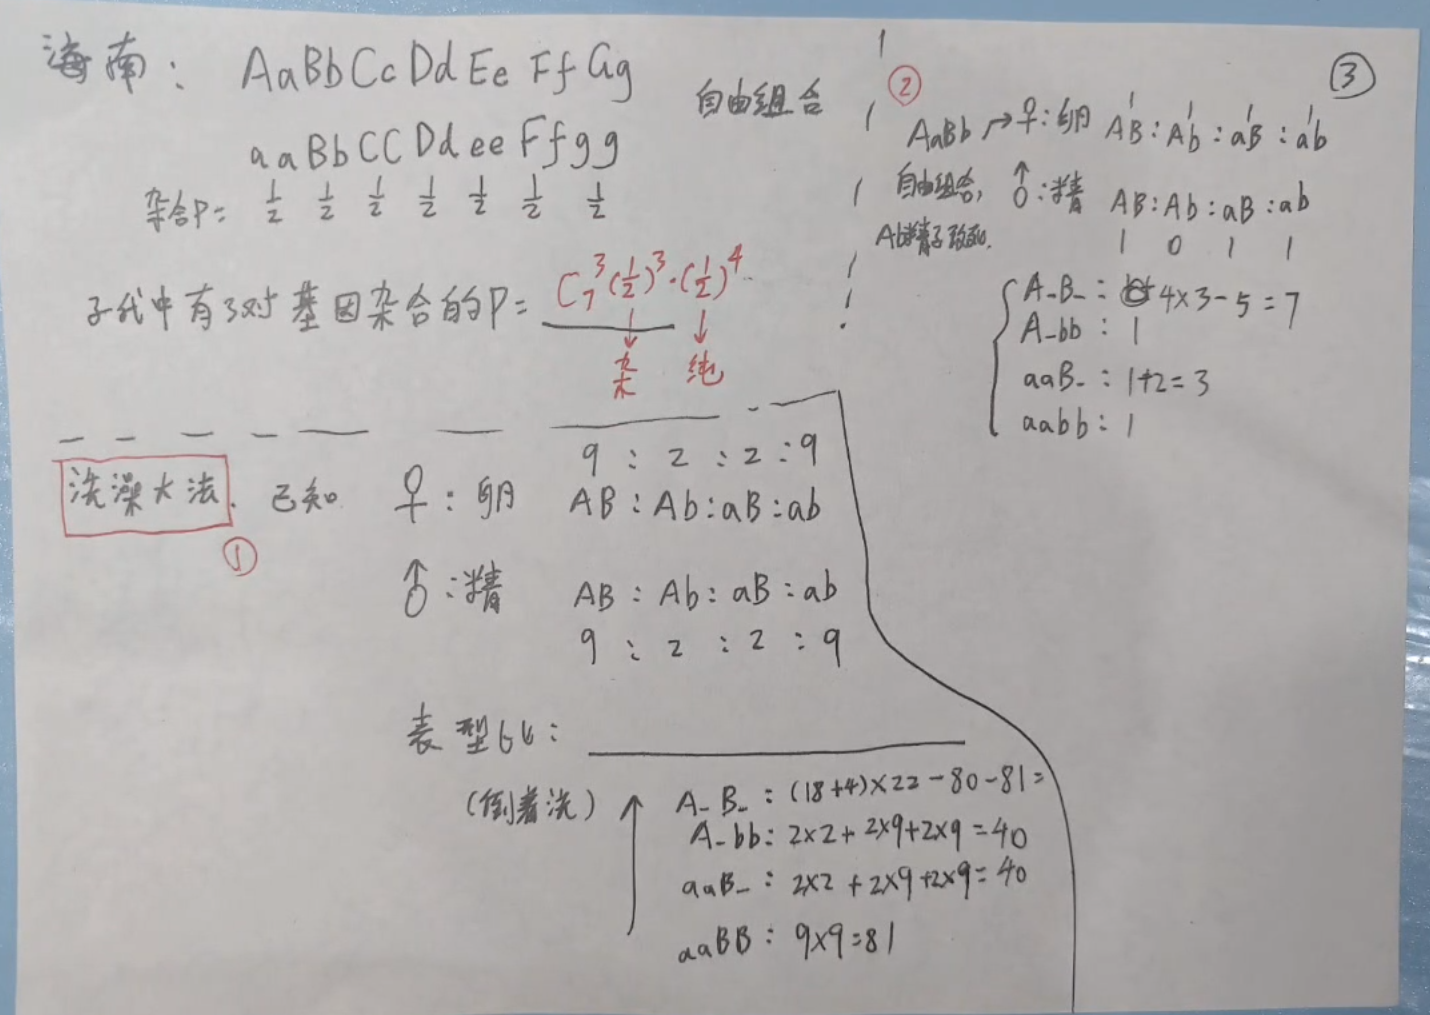 海南：AaBbCcDdEeFfGg
aaBbCCDdeeFfgg
自由组合
杂合P= 1/2 1/2 1/2 1/2 1/2 1/2 1/2
子代中有3对基因杂合的P= C₇³(1/2)³·(1/2)⁴
↓ ↓
杂 纯
洗澡大法. 已知 ♀：卵 AB：Ab：aB：ab
9：2：2：9
①
♂：精 AB：Ab：aB：ab
9：2：2：9
表型比：
(倒着洗) ↑
A_B_：(18+4)×22-80-81=
A_bb：2×2+2×9+2×9=40
aaB_：2×2+2×9+2×9=40
aaBB：9×9=81
②
AaBb → ♀：卵 AB：Ab：aB：ab
1 1 1 1
自由组合, ♂：精 AB：Ab：aB：ab
Ab精子致死. 1 0 1 1
A_B_：4×3-5=7
A_bb：1
aaB_：1+2=3
aabb：1
③